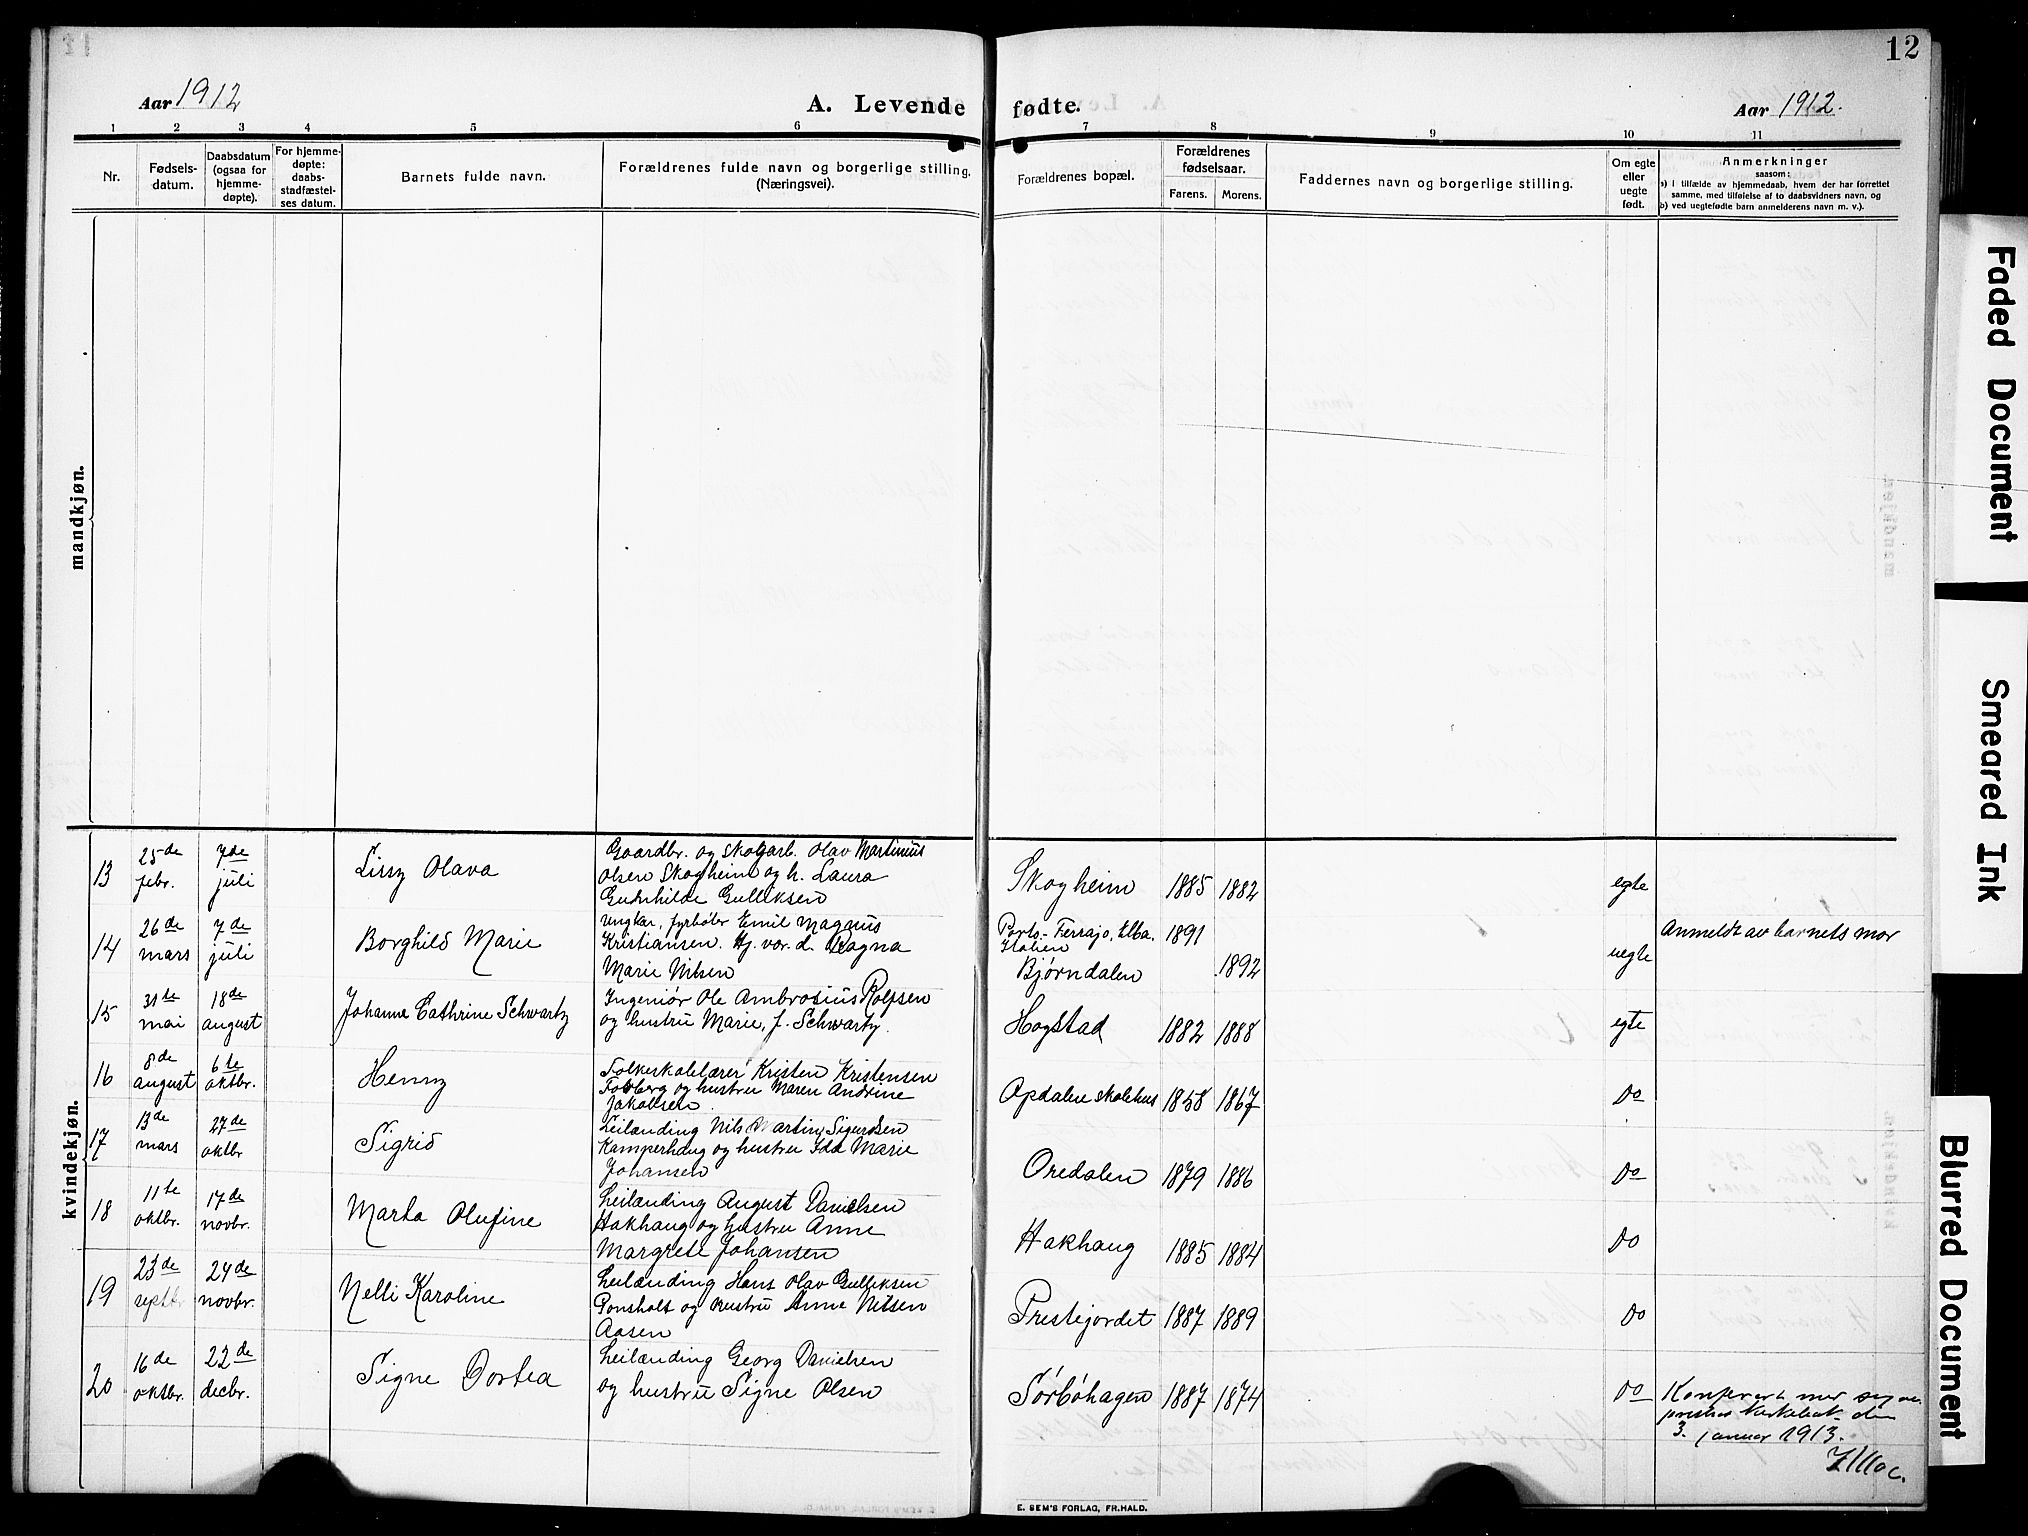 12
Aar 1912
A. Levende fødte.
Aar 1912.
1 2 3 4 5 6 7 8 9 10 11
Nr.
Fødsels-
datum.
Daabsdatum
(ogsaa for
hjemme-
døpte).
For hjemme-
døpte:
daabs-
stadfæstel-
ses datum.
Barnets fulde navn.
Forældrenes fulde navn og borgerlige stilling.
(Næringsvei).
Forældrenes bopæl.
Forældrenes
fødselsaar.
Farens. Morens.
Faddernes navn og borgerlige stilling.
Om egte
eller
uegte
født.
Anmerkninger
saasom:
a) i tilfælde av hjemmedaab, hvem der har forrettet
samme, med tilføielse af to daabsvidners navn, og
b) ved uegtefødte barn anmelderens navn m. v.).
mandkjøn.
kvindekjøn.
13
25de
febr.
7de
juli
Lissy Olava
Gaardbr. og skogarb. Olav Martinius
Olsen Skogheim og h. Laura
Gudnhilde Gulliksen
Skogheim 1885 1882
egte
14
26de
mars
7de
juli
Borghild Marie
Ungkar, fyrbøter Emil Magnus
Kristiansen. Hj. vær. d. Ragna
Marie Nilsen
Porto-Ferrajo, Elba. 1891
Italien
Bjørndalen 1892
uegte
Anmeldt av barnets mor
15
31te
mai
18de
august
Johanne Cathrine Schwartz
Ingeniør Ole Ambrosius Rolfsen
og hustru Marie, f. Schwartz.
Hogstad 1882 1888
egte
16
8de
august
6te
oktbr.
Henny
Folkeskolelærer Kristen Kristensen
Folberg og hustru Maren Andrine
Jakobsen
Opdalen skolehus 1858 1867
do
17
13de
mars
27de
oktbr
Sigrid
Leilænding Nils Martin Sigurdsen
Kamperhaug og hustru Ida Marie
Johansen
Oredalen 1879 1886
do
18
11te
oktbr.
17de
novbr.
Marta Olufine
Leilænding August Danielsen
Hakhaug og hustru Anne
Margrete Johansen
Hakhaug 1885 1884
do
19
23de
septbr
24de
novbr.
Nelli Karoline
Leilænding Hans Olav Gulliksen
Ponsholt og hustru Anne Nilsen
Aasen
Prestejordet 1887 1889
do
20
16de
oktbr.
22de
decbr.
Signe Dortea
Leilænding Georg Danielsen
og hustru Signe Olsen
Sørbøhagen 1887 1874
do
Konferert med sogne
prestens kirkebok den
3. januar 1913.
E. SEM'S FORLAG, FR.HALD.
Faded Document
Smeared Ink
Blurred Document